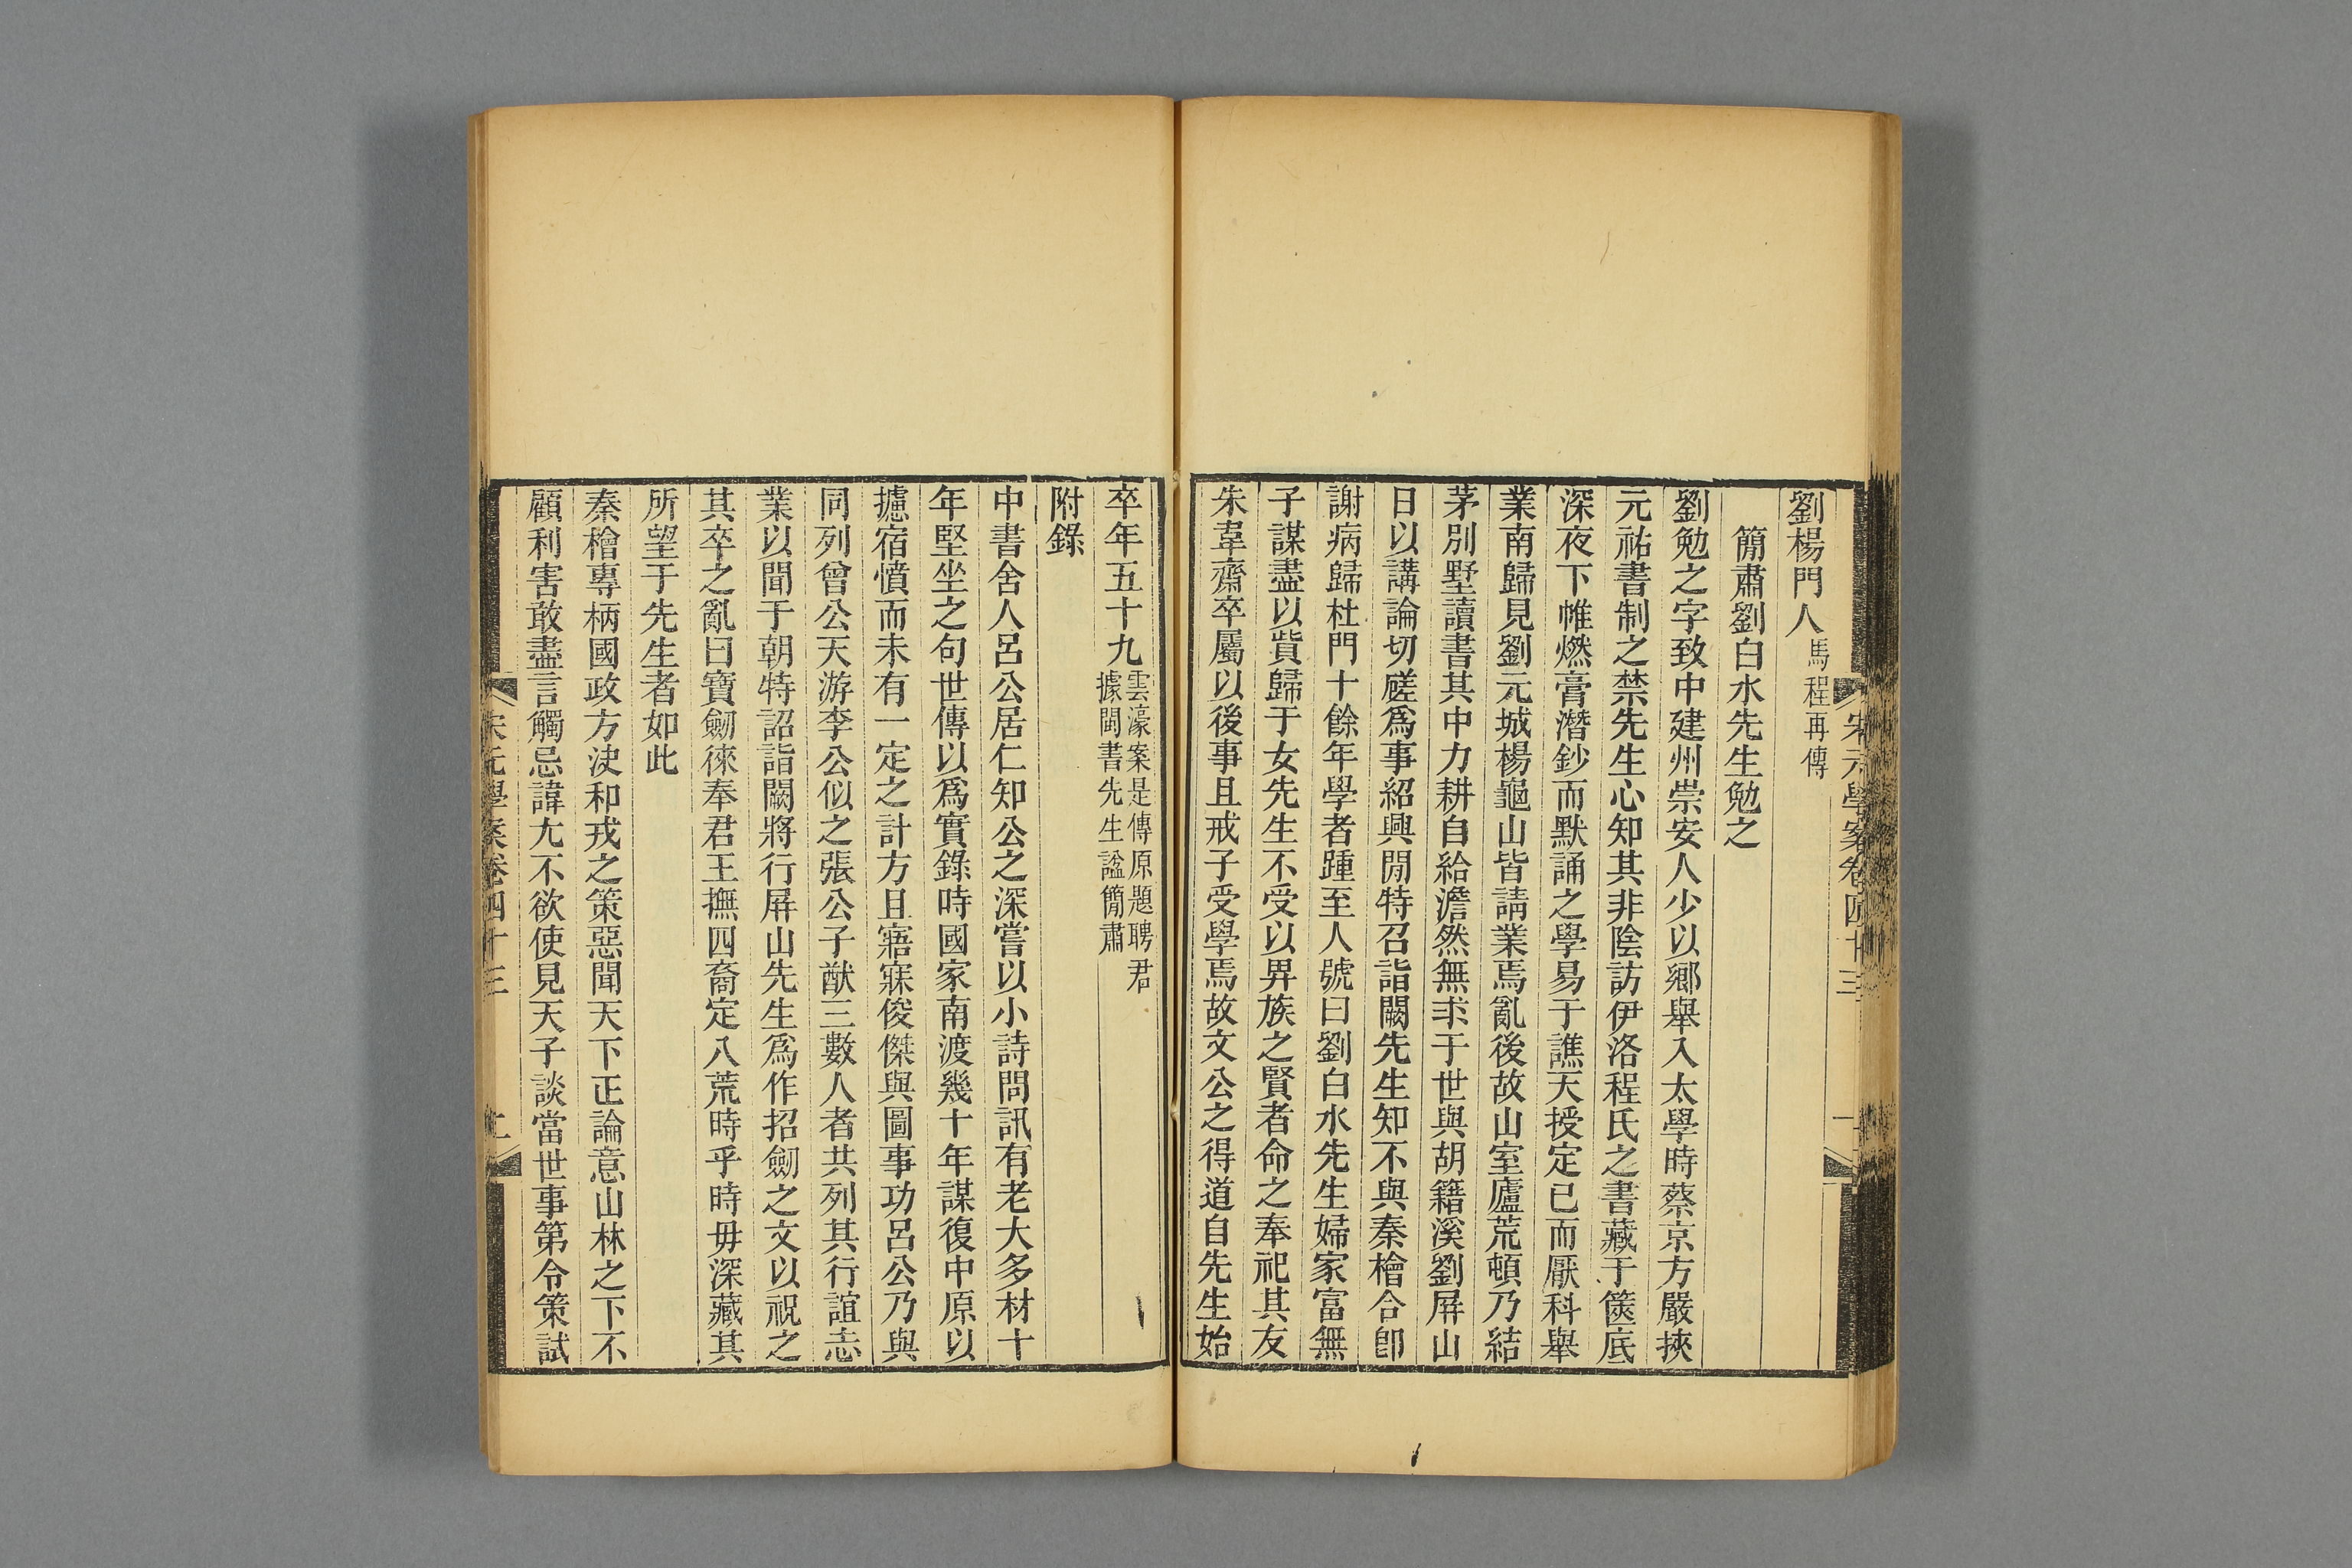 劉楊門人馬程再傳
簡肅劉白水先生勉之
劉勉之字致中建州崇安人少以鄉舉入太學時蔡京方嚴挾
元祐書制之禁先生心知其非陰訪伊洛程氏之書藏于篋底
深夜下帷燃膏潛鈔而默誦之學易于譙天授定已而厭科舉
業南歸見劉元城楊龜山皆請業焉亂後故山室廬荒頓乃結
茅別墅讀書其中力耕自給澹然無求于世與胡籍溪劉屏山
日以講論切磋爲事紹興閒特召詣闕先生知不與秦檜合卽
謝病歸杜門十餘年學者踵至人號曰劉白水先生婦家富無
子謀盡以貲歸于女先生不受以畀族之賢者命之奉祀其友
朱韋齋卒屬以後事且戒子受學焉故文公之得道自先生始
宋元學案卷四十三
卒年五十九雲濠案是傳原題聘君
據閩書先生諡簡肅
附錄
中書舍人呂公居仁知公之深嘗以小詩問訊有老大多材十
年堅坐之句世傳以爲實錄時國家南渡幾十年謀復中原以
攄宿憤而未有一定之計方且寤寐俊傑與圖事功呂公乃與
同列曾公天游李公似之張公子猷三數人者共列其行誼志
業以聞于朝特詔詣闕將行屏山先生爲作招劒之文以祝之
其卒之亂曰寶劒徠奉君王撫四裔定八荒時乎時毋深藏其
所望于先生者如此
秦檜專柄國政方決和戎之策惡聞天下正論意山林之下不
顧利害敢盡言觸忌諱尤不欲使見天子談當世事第令策試
宋元學案卷四十三